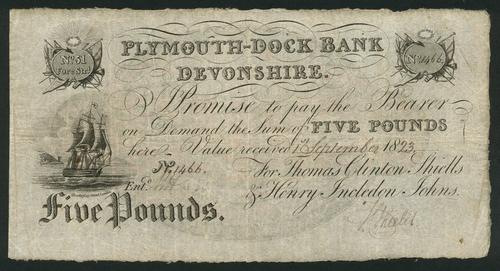 PLYMOUTH-DOCK BANK
No. 51
Fore Str.t
No. 1466.
DEVONSHIRE.
I Promise to pay the Bearer
on Demand the Sum of FIVE POUNDS
here Value received September 1823
No. 1466. For Thomas Clinton Shiells
Ent.d & Henry Incledon Johns.
Five Pounds.